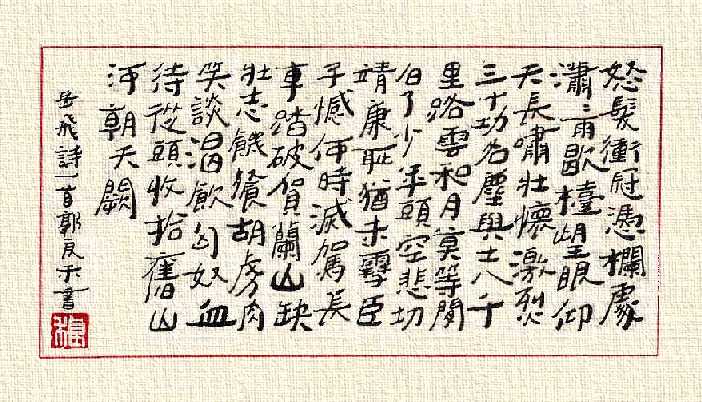 怒髮衝冠憑欄處
瀟〻雨歇擡望眼仰
天長嘯壯懷激烈
三十功名塵與土八千
里路雲和月莫等閒
白了少年頭空悲切
靖康恥猶未雪臣
子憾何時滅駕長
車踏破賀蘭山缺
壯志饑餐胡虜肉
笑談渴飲匈奴血
待從頭收拾舊山
河朝天闕
岳飛詩一首郭良書